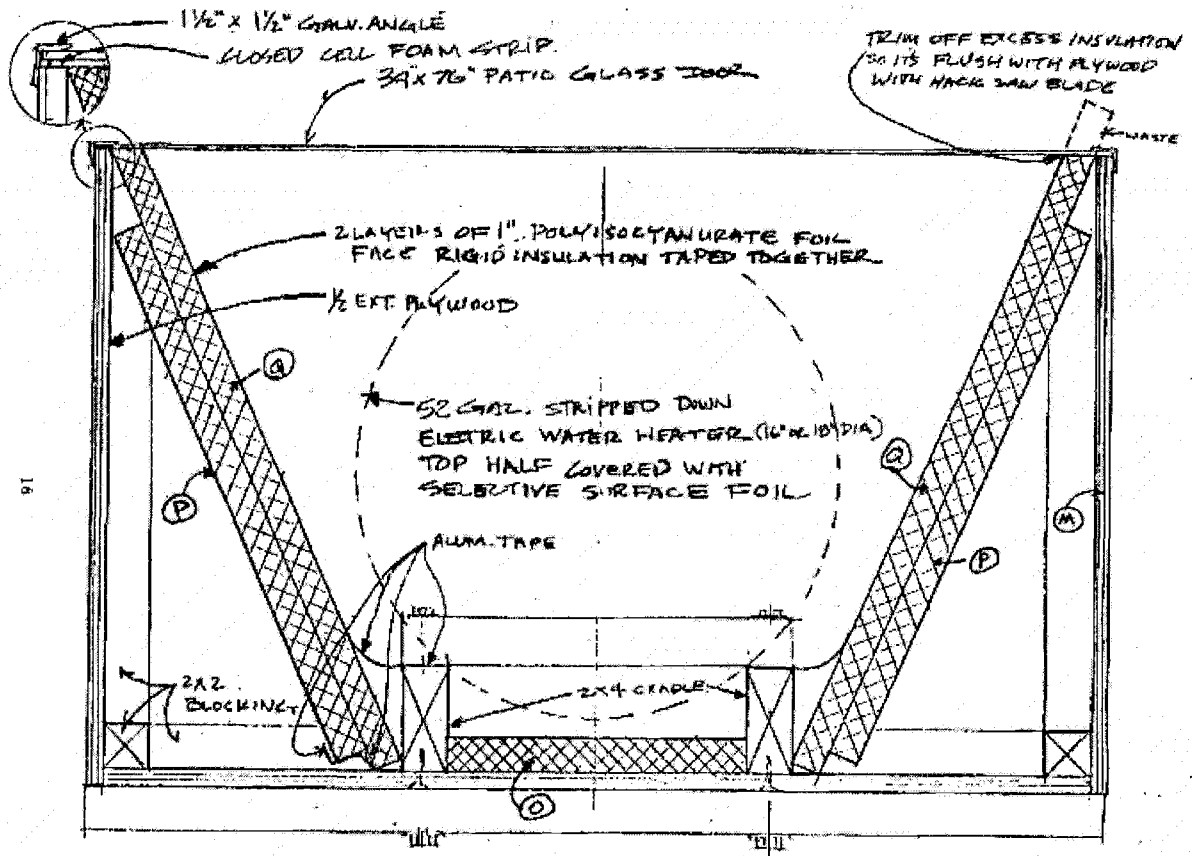 1½" x 1½" GALV. ANGLE
CLOSED CELL FOAM STRIP.
34" x 76" PATIO GLASS DOOR
TRIM OFF EXCESS INSULATION
SO ITS FLUSH WITH PLYWOOD
WITH HACK SAW BLADE
WASTE
2 LAYERS OF 1" POLYISOCYANURATE FOIL
FACE RIGID INSULATION TAPED TOGETHER
½ EXT. PLYWOOD
Q
52 GAL. STRIPPED DOWN
ELECTRIC WATER HEATER (16" OR 18" DIA)
TOP HALF COVERED WITH
SELECTIVE SURFACE FOIL
Q
16
P
M
ALUM. TAPE
P
2X2
BLOCKING
2X4 CRADLE
O